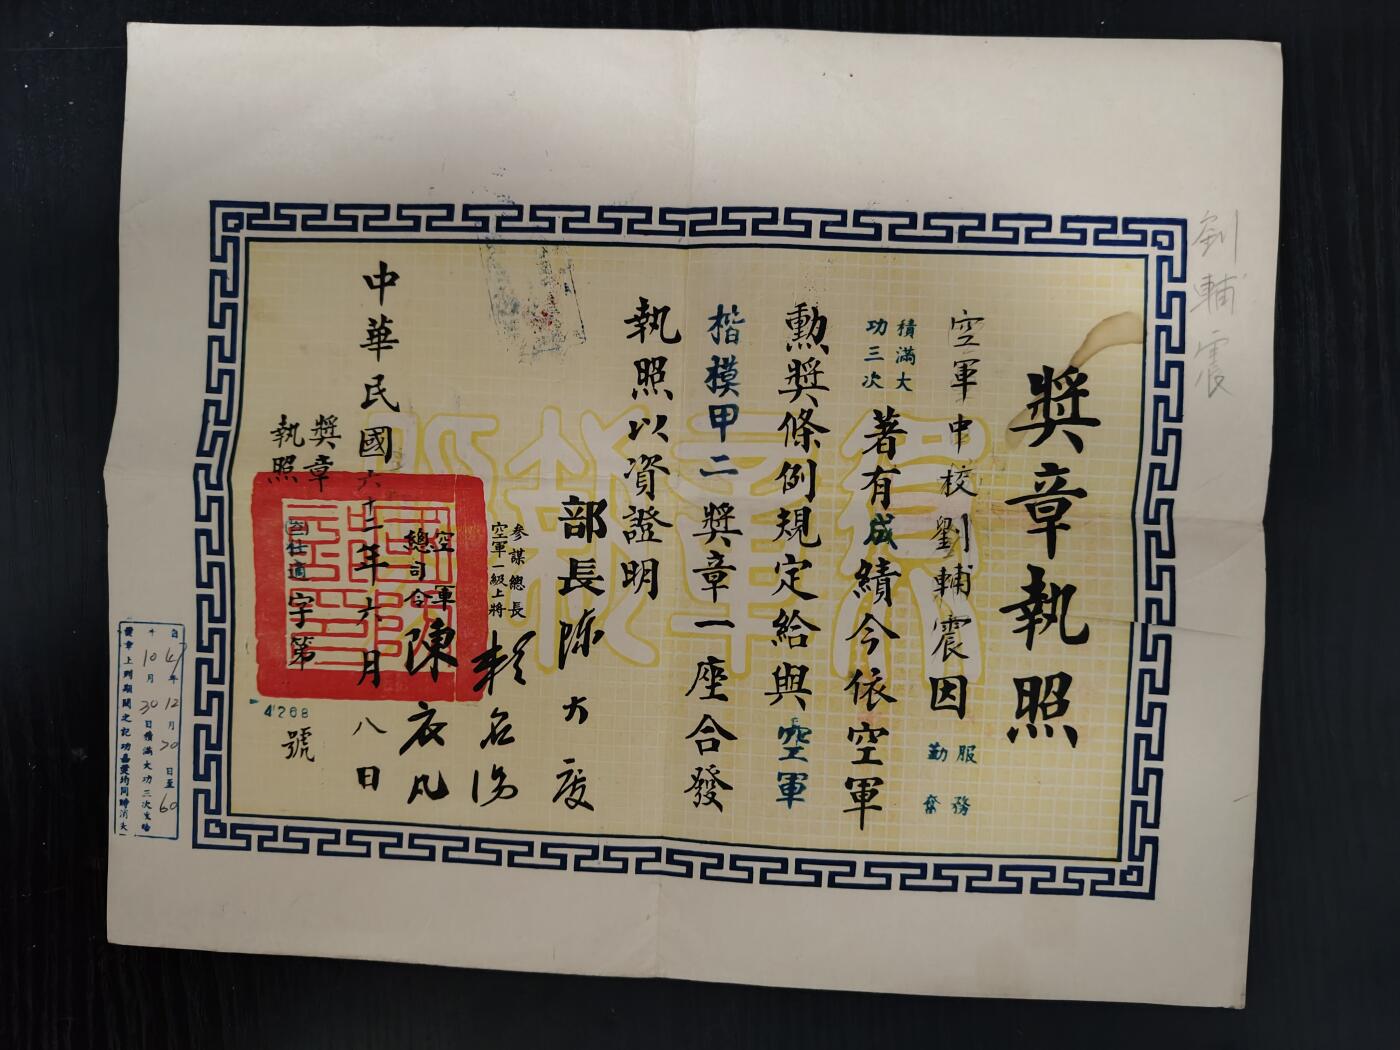 劉輔震
獎章執照
空軍中校劉輔震因
服務
勤奮
積滿大
功三次
著有成績今依空軍
勳獎條例規定給與空軍
楷模甲二獎章一座合發
執照以資證明
部長陳大慶
參謀總長
空軍一級上將
賴名湯
空軍
總司令
陳衣凡
中華民國六十一年六月八日
獎章
執照
字第
4268
號
自47年12月20日至60
年10月30日積滿大功三次支給